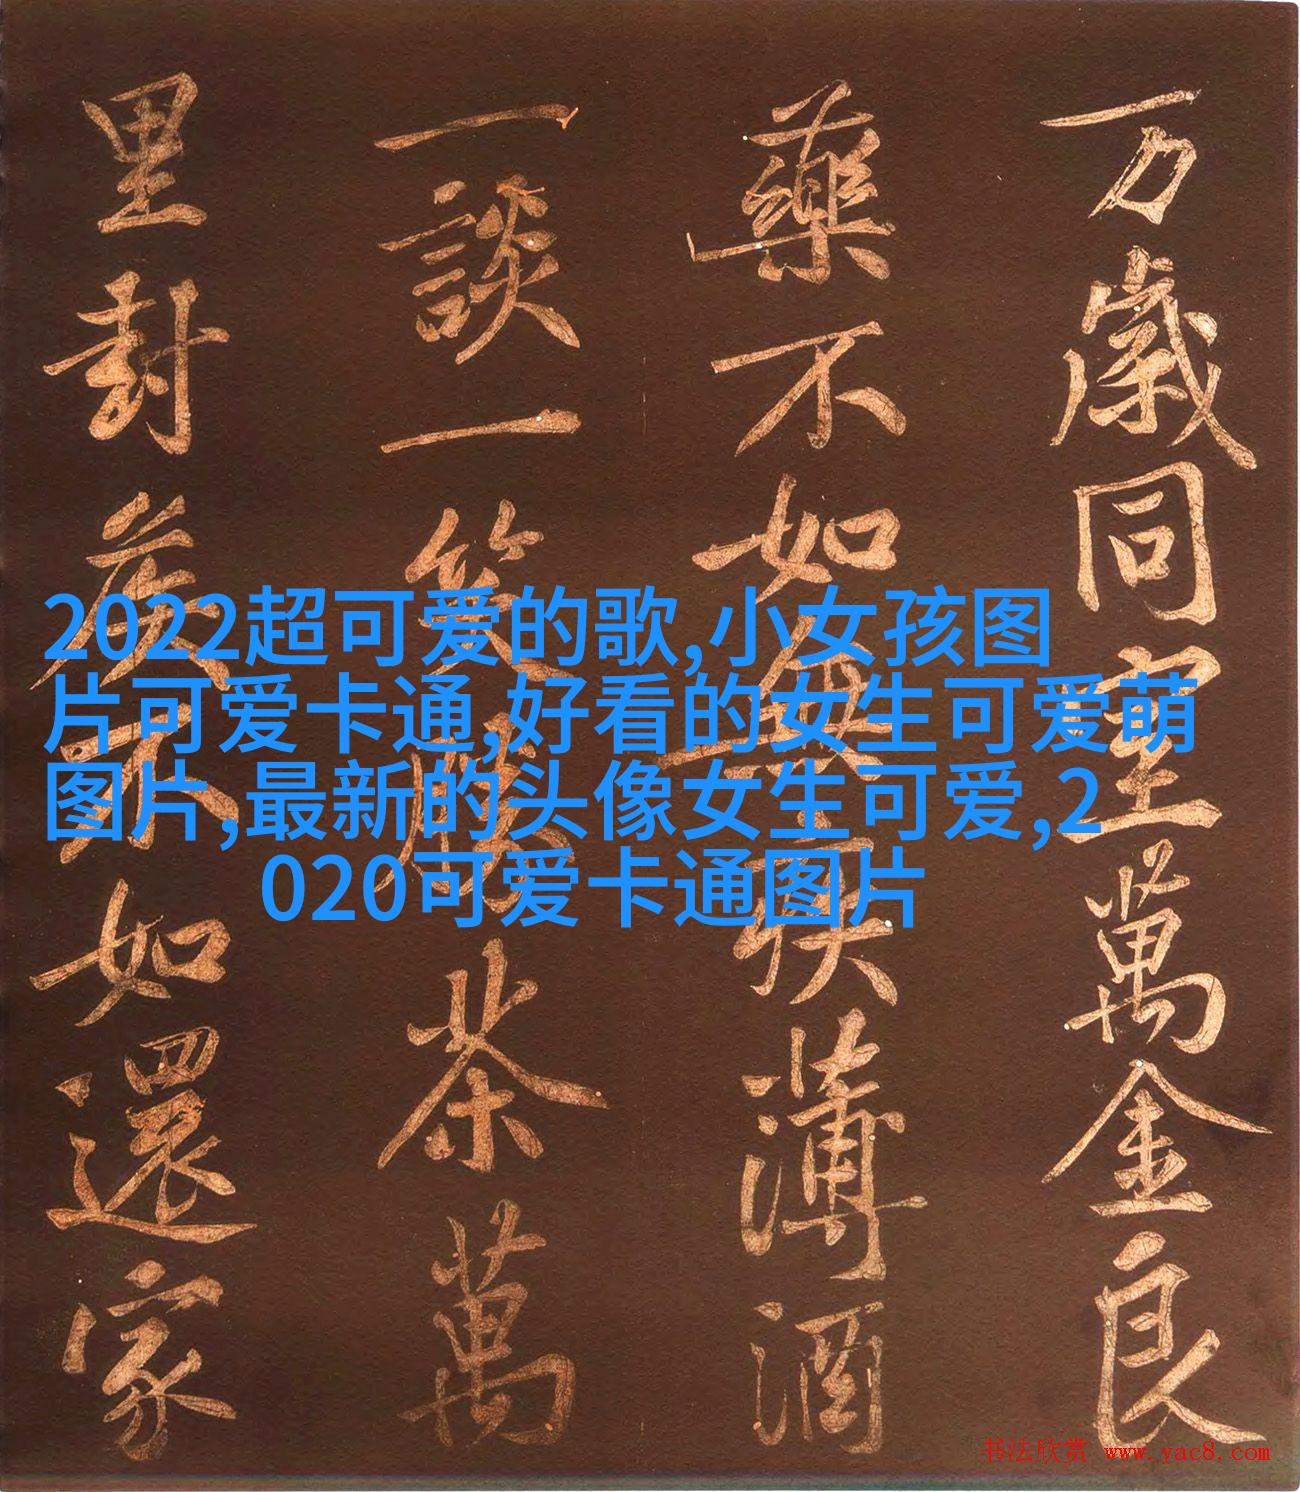 万歲同室萬金良
藥不如無疾薄酒
一談一笑勝茶萬
里封侯不如還家
2022超可爱的歌,小女孩图
片可爱卡通,好看的女生可爱萌
图片,最新的头像女生可爱,2
020可爱卡通图片
书法欣赏 www.yac8.com